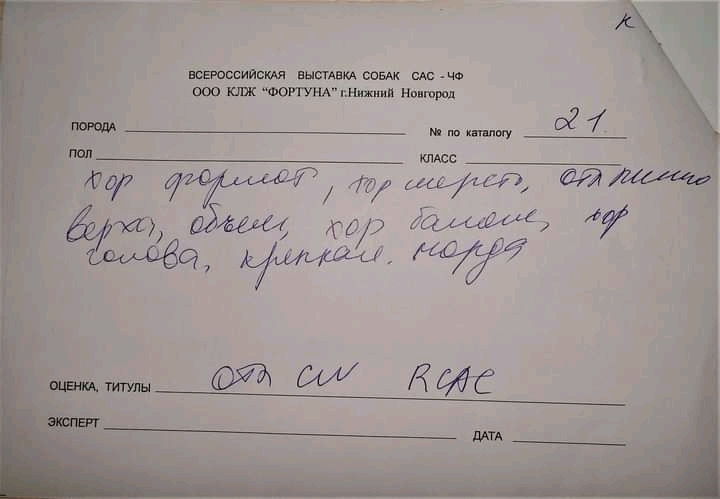 К
ВСЕРОССИЙСКАЯ ВЫСТАВКА СОБАК САС - ЧФ
ООО КЛЖ "ФОРТУНА" г.Нижний Новгород
ПОРОДА № по каталогу 21
ПОЛ КЛАСС
хор формат, хор шерсть, отл линию
верха, объем, хор баланс, хор
голова, крепкая. морда
ОЦЕНКА, ТИТУЛЫ отл CW RCAC
ЭКСПЕРТ ДАТА